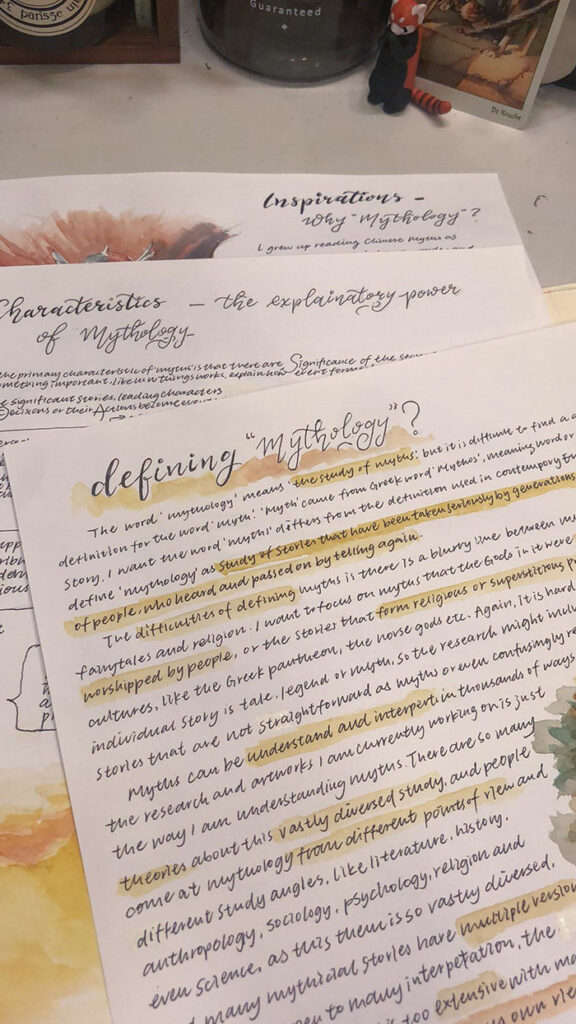 Parisse
Guaranteed
De Kracht
Inspirations -
Why "Mythology"?
I grew up reading Chinese myths as
Characteristics - the explainatory power
of Mythology
the primary characteristic of myths is that there are Significance of the
omething important, like how things works, explain how event formed
significant stories, leading characters
Decisions or their Actions become
defining "Mythology"?
The word 'mythology' means 'the study of myths', but it is difficult to find a
definition for the word 'myth'. 'Myth' came from Greek word 'mythos', meaning word or
story. I want the word 'myths' differs from the definition used in contemporary
define 'mythology' as study of stories that have been taken seriously by generations
of people, who heard and passed on by telling again.
The difficulties of defining myths is there is a blurry line between
fairytales and religion. I want to focus on myths that the Gods in it were
worshipped by people, or the stories that form religious or superstitious
cultures, like the Greek pantheon, the norse gods etc. Again, it is hard
individual story is tale, legend or myth, so the research might
stories that are not straightforward as myths or even confusingly
Myths can be understand and interpert in thousands of ways
the research and artworks I am currently working on is just
the way I am understanding myths. There are so many
theories about this vastly diversed study, and people
come at mythology from different points of view and
different study angles, like literature, history,
anthropology, sociology, psychology, religion and
even science, as this them is so vastly diversed.
many mythicial stories have multiple
to many interpetation, the
too extensive with
own